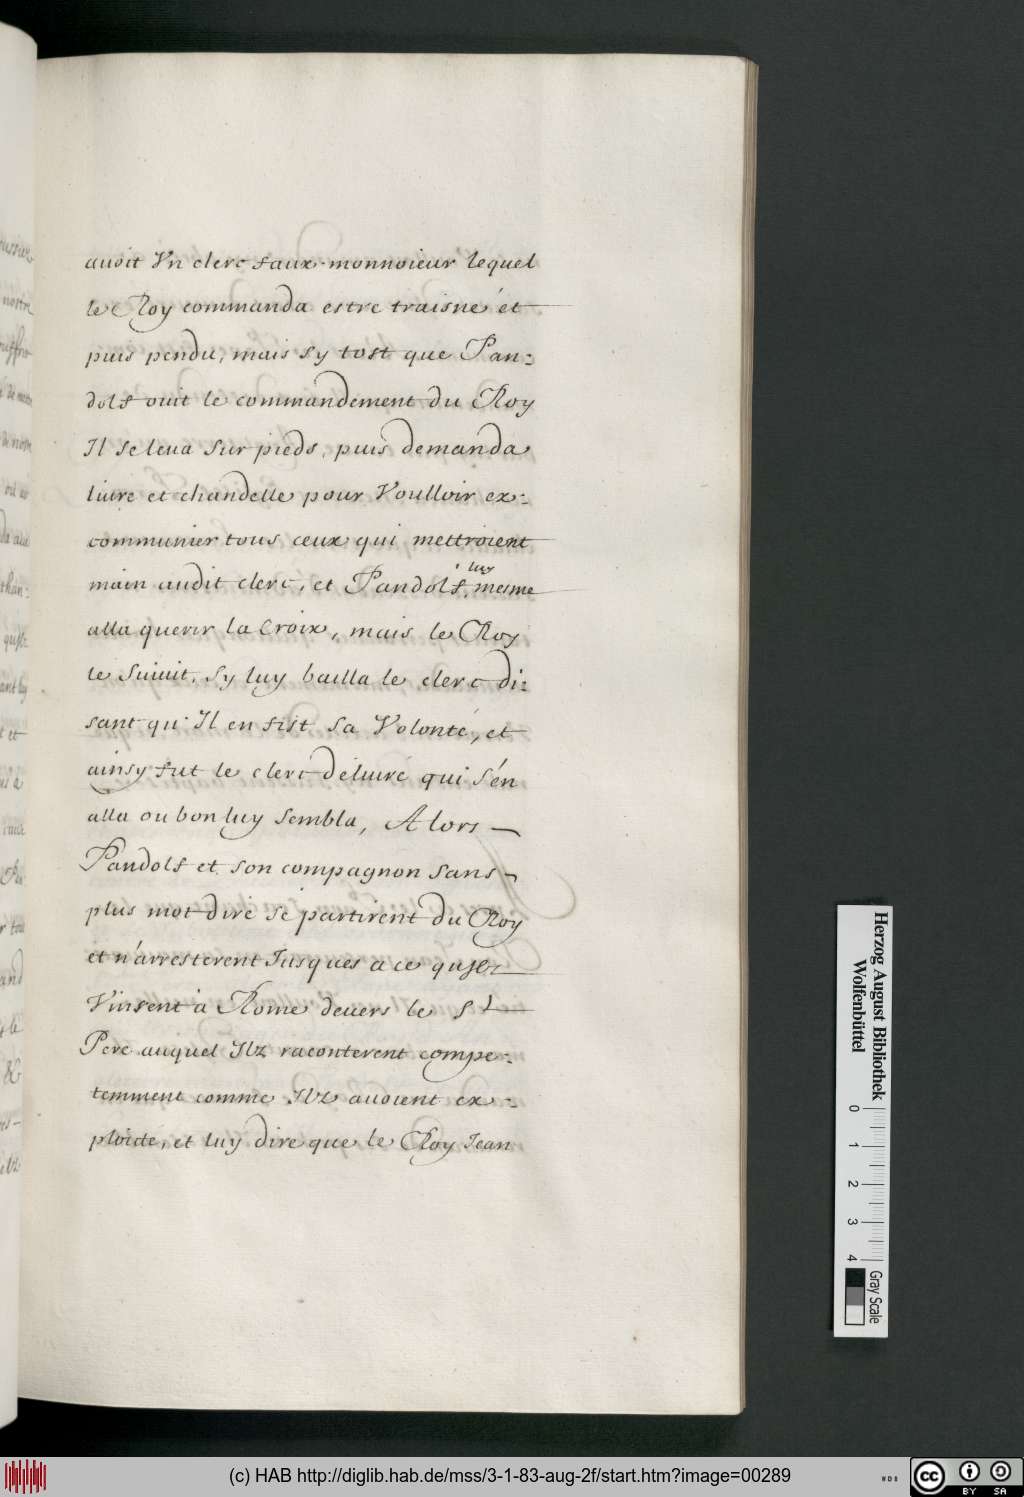 avoit Vn clerc faux-monnoieur lequel
le Roy commanda estre traisné et
puis pendu, mais sy tost que Pan-
dolf ouit le commandement du Roy
Il se leva sur pieds, puis demanda
livre et chandelle pour Voulloir ex-
communier tous ceux qui mettroient
main audit clerc, et Pandolf luy mesme
alla querir la Croix, mais le Roy
le suivit, sy luy bailla le clerc di-
sant qu'Il en fist sa Volonté, et
ainsy fut le clerc délivré qui s'én
alla ou bon luy sembla, Alors
Pandolf et son compagnon sans
plus mot dire se partirent du Roy
et n'arresterent Iusques a ce qu'Ilz
Vinsent à Rome devers le St
Pere auquel Ilz raconterent compe-
temment comme Ilz avoient ex-
ploicté, et luy dire que le Roy Iean
Herzog August Bibliothek
Wolfenbüttel
0 1 2 3 4
Gray Scale
(c) HAB http://diglib.hab.de/mss/3-1-83-aug-2f/start.htm?image=00289
cc BY SA